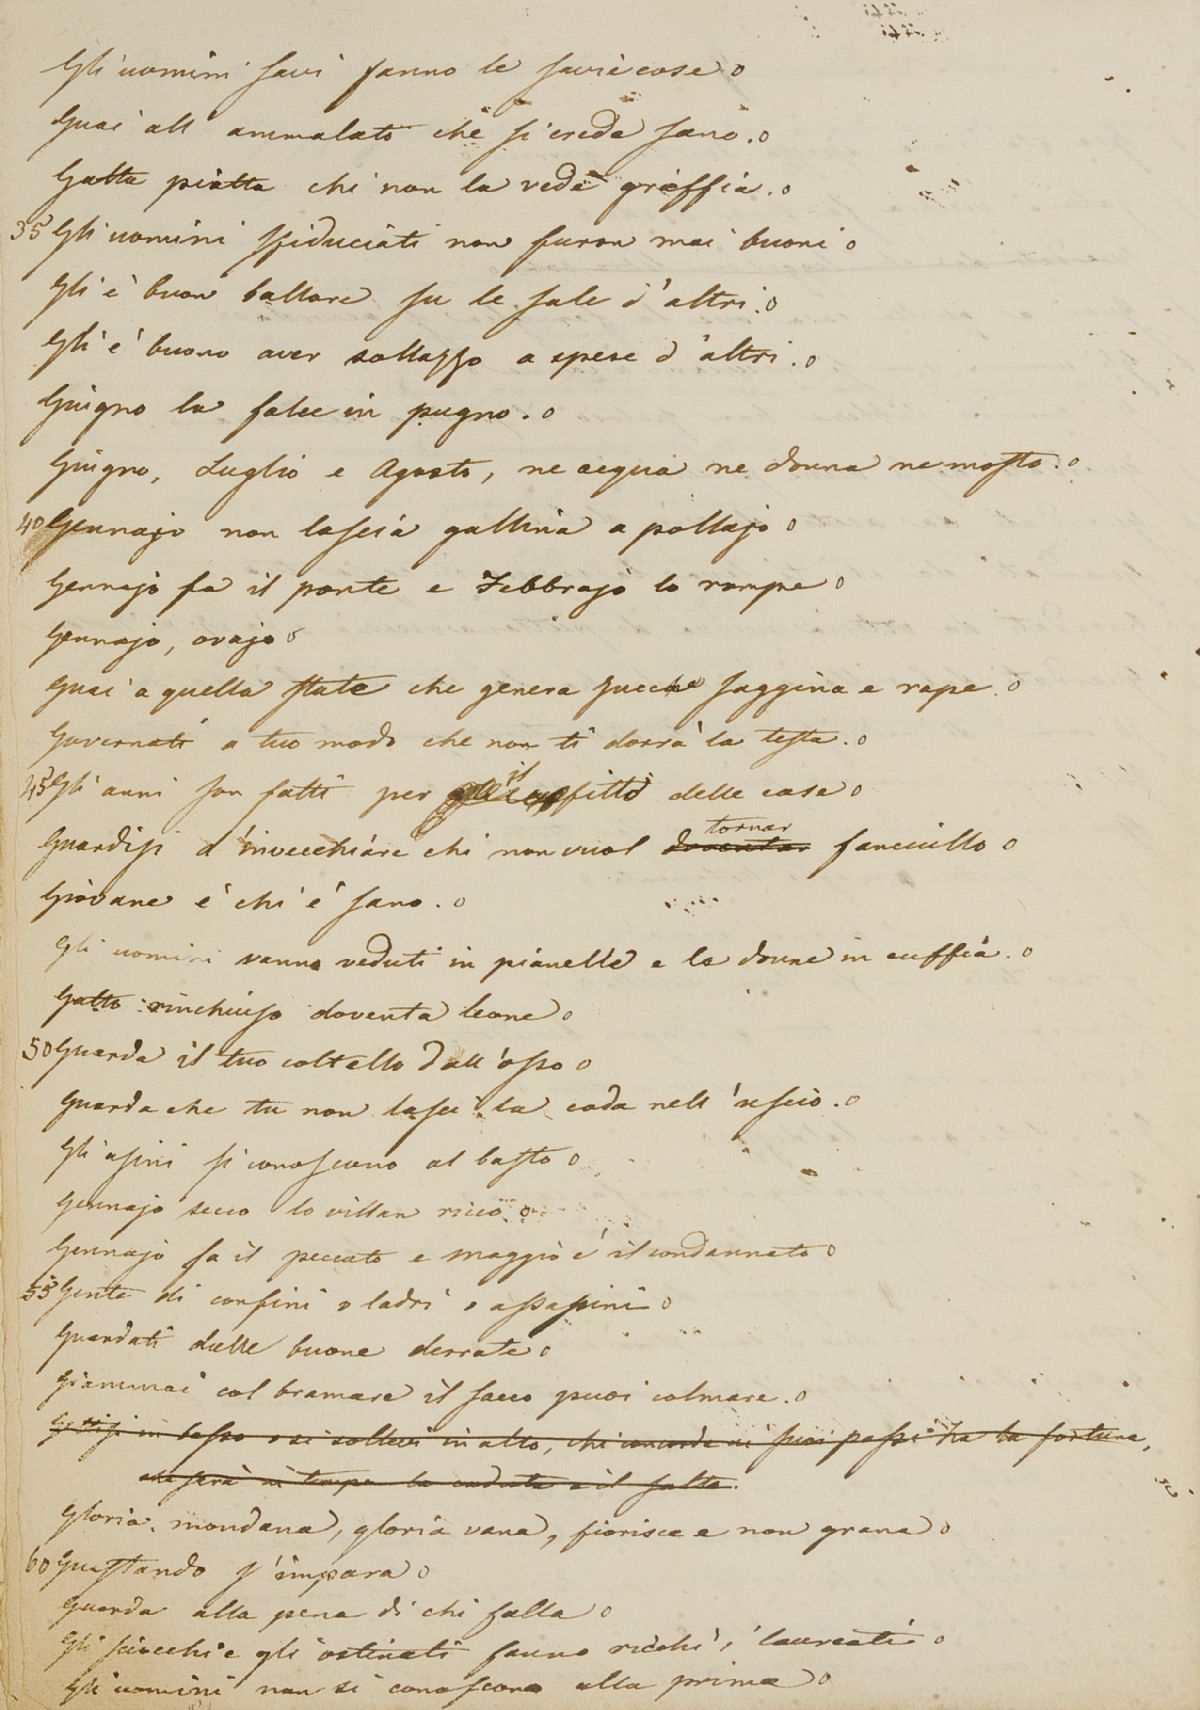 Gli uomini savi fanno le savie cose o
Guai all' ammalato che si crede sano. o
Gatta piatta chi non la vede griffia. o
35 Gli uomini sfiduciati non furon mai buoni o
Gli è buon ballare su le sale d'altri. o
Gli è buono aver sollazzo a spese d'altri. o
Giugno la falce in pugno. o
Giugno, Luglio e Agosto, ne acqua ne donna ne mosto. o
40 Gennajo non lascia gallina a pollajo o
Gennajo fa il ponte e Febbrajo lo rompe o
Gennajo, ovajo o
Guai a quella state che genera zucche saggina e rape. o
Governati a tuo modo che non ti dorrà la testa. o
il
45 Gli anni son fatti per fitto delle case o
tornar
Guardisi d'invecchiare chi non vuol doventar fanciullo o
Giovane è chi è sano. o
Gli uomini vanno veduti in pianelle e le donne in cuffia. o
Gatto rinchiuso doventa leone o
50 Guarda il tuo coltello dall'osso o
Guarda che tu non lasci la coda nell'uscio. o
Gli asini si conoscono al basto o
Gennajo secco lo villan ricco. o
Gennajo fa il peccato e Maggio è il condannato o
55 Gente di confini o ladri o assassini o
Guardati dalle buone derrate o
Giammai col bramare il sacco puoi colmare. o
Gettisi in basso o si sollevi in alto, chi concorda ai suoi passi ha la fortuna,
a tempo la caduta e il salto.
Gloria mondana, gloria vana, fiorisce e non grana o
60 Guastando s'impara o
Guarda alla pena di chi falla o
Gli sciocchi e gli ostinati fanno ricchi i laureati o
Gli uomini non si conoscono alla prima o